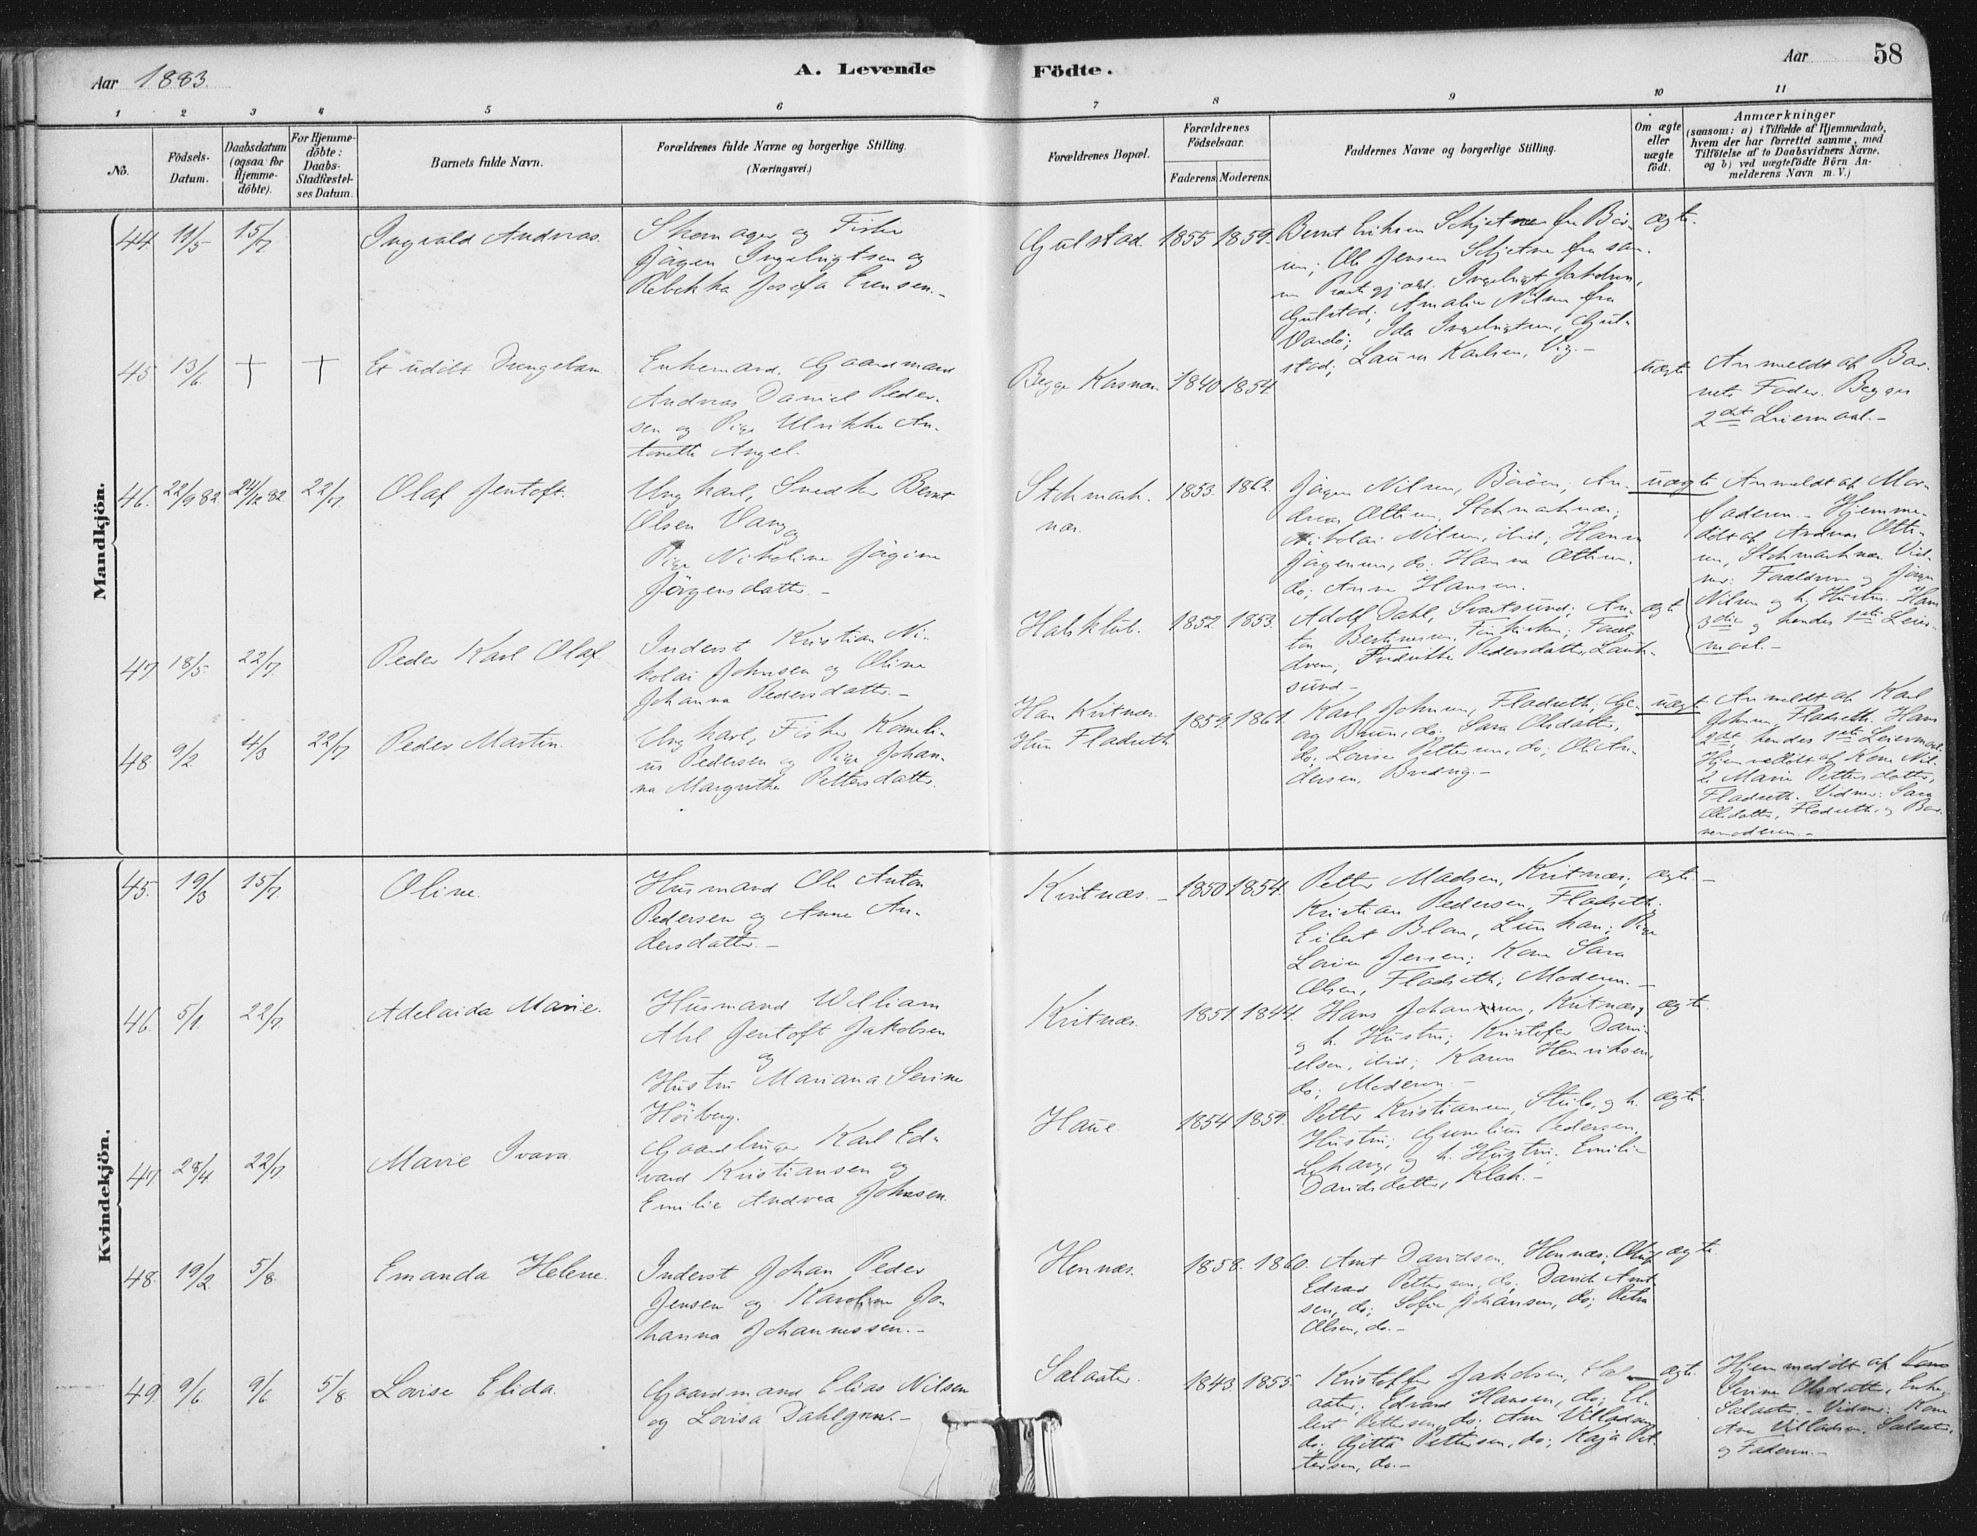 Aar 1883.
A. Levende Födte.
Aar 58
1 2 3 4 5 6 7 8 9 10 11
No.
Födsels-Datum.
Daabsdatum (ogsaa for Hjemme-döbte).
For Hjemme-döbte: Daabs-Stadfæstel-ses Datum.
Barnets fulde Navn.
Forældrenes fulde Navne og borgerlige Stilling. (Næringsvei.)
Forældrenes Bopæl.
Forældrenes Födselsaar.
Faderens. Moderens.
Faddernes Navne og borgerlige Stilling.
Om ægte eller uægte födt.
Anmærkninger (saasom: a) i Tilfælde af Hjemmedaab, hvem der har forrettet samme, med Tilföielse af to Daabsvidners Navne, og b) ved uægtefödte Börn An-melderens Navn m. V.)
Mandkjön.
44 11/5 15/7 Ingvald Andreas.
Skomager og Fisker
Jörgen Ingebrigtsen og
Rebekka Josefa Evensen.-
Gulstad. 1855 1859.
Ole Jensen Schjetne fra sam-
Præstegjæld. Ingebrigt Jakobsen,
Gulstad; Amalie Nilsen fra
Vardö; Ida Ingebrigtsen, Gul-
stad; Laura Karlsen, Vig.-
ægte.
45 13/6 + + Et udöbt Drengebarn
Enkemand, Gaardmand
Andreas Daniel Peder-
sen og Pige Ulrikke An-
tonette Angel.
Begge Kasnæs. 1840 1854.
uægte
Anmeldt af Bar-
nets Fader. Begges
2det Leiermaal.-
46. 22/9 82 24/12 82 22/7 Olaf Jentoft.
Ungkarl, Snedker Bernt
Olsen Vang
og
Pige Nikoline Jörgine
Jörgensdatter.-
Stokmark-
næs.
1853. 1862.
Jörgen Nilsen, Böröen; An-
dreas Ottesen, Stokmarknæs;
Nikolai Nilsen, ibid; Hanna
Jörgensen, do; Hanna Ottesen,
do; Anna Hansen.
uægte
Anmeldt af Mor-
faderen.- Hjemme-
döbt af Andreas Otte-
sen, Stokmarknæs. Vid-
ner: Forældrene og Jörgen
Nilsen og h. Hustru. Hans
3die og hendes 1ste Leier-
maal.-
47 18/5. 22/7. Peder Karl Olaf
Inderst Kristian Ni-
kolai Johnsen og Oline
Johanna Pedersdatter.-
Halsklub. 1852. 1853.
Adolf Dahl, Svartsund; An-
ton Bertinussen,
Fredrikke Pedersdatter,
sund-
ægte
48 9/2. 4/3 22/7 Peder Martin.
Ungkarl, Fisker Korneli-
us Pedersen og Pige Johan-
na Margrethe Pettersdatter.
Han Kvitnæs.
Hun Fladseth
1859. 1861.
Karl Johnsen, Fladseth;
Bruun, do; Sara Olsdatter,
do; Lovise Pettersen, do; Ole An-
dersen, Bredvig.-
uægte
Anmeldt af Karl
Johnsen, Fladseth. Hans
2det, hendes 1ste Leiermaal.
Hjemmedöbt af Kone
Marie Pettersdatter,
Fladseth. Vidner: Sara
Olsdatter, Fladseth, og Bar-
nemoderen.-
Kvindekjön.
45. 19/3 15/7. Oline.
Husmand Ole Anton
Pedersen og Anne An-
dersdatter.-
Kvitnæs.- 1850 1854.
Petter Madsen, Kvitnæs;
Kristian Pedersen, Fladseth.
Eilert Pige
Lovise Jensen; Kone Sara
Olsen, Fladseth; Moderen.-
ægte-
46. 5/1 22/7. Adelaida Marie.
Husmand William
Jentoft Jakobsen
og
Hustru Mariana Serine
Höiberg.
Kvitnæs. 1851. 1844.
Hans Johansen, Kvitnæs,
og h. Hustru; Kristofer Dani-
elsen, ibid; Karen Henriksen,
do; Moderen.-
ægte.
47 28/4 22/7. Marie Ivara.
Gaardbruger Karl Ed-
vard Kristiansen og
Emilie Andrea Johnsen.
Haue. 1854 1859.
Petter Kristiansen, og h.
Hustru; Cornelius Pedersen,
og h. Hustru; Emilie
Davidsdatter, Klak.-
ægte.
48. 19/2 5/8 Emanda Helene.
Inderst Johan Peder
Jensen og Karoline Jo-
hanna Johannessen.-
Hennæs. 1858. 1860.
Arnt Davidsen, Hennæs; Oluf
Edvard Pettersen, do; David Arnt-
sen, do; Sofie Johansen, do; Petra
Olsen, do.-
ægte.
49. 9/6 9/6 5/8 Lovise Elida.
Gaardmand Elias Nilsen
og Lovisa Dahlgren.-
Salaater. 1843. 1855.
Kristoffer Jakobsen, Sal-
aater; Edvard Hansen, do; El-
bert Pettersen, do; Ane Villadsen,
do; Gjitta Pettersen, do; Kaja Pet-
tersen, do.-
ægte.
Hjemmedöbt af Kone
Serine Olsdatter, Enke,
Salaater.- Vidner: Kone
Ane Villadsen, Salaater,
og Faderen.-